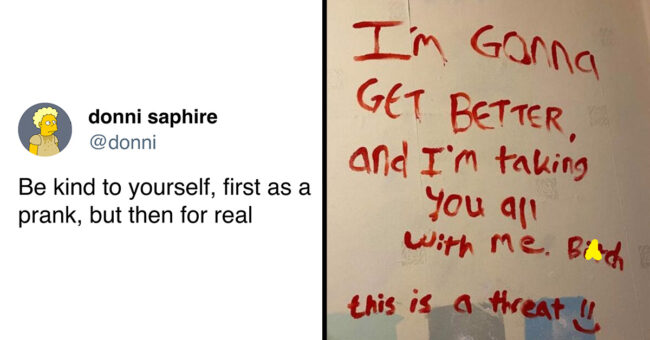 donni saphire
@donni
Be kind to yourself, first as a
prank, but then for real
I'm GONNA
GET BETTER,
and I'm taking
You all
with me. Bitch
this is a threat !!